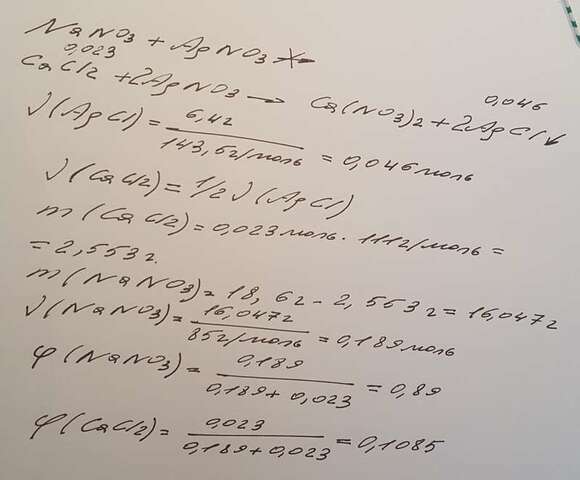 NaNO3 + AgNO3 ↛
0,023 0,046
CaCl2 + 2AgNO3 → Ca(NO3)2 + 2AgCl↓
ν(AgCl) = 6,4г / 143,5г/моль = 0,046моль
ν(CaCl2) = 1/2 ν(AgCl)
m(CaCl2) = 0,023моль · 111г/моль =
= 2,553г.
m(NaNO3) = 18,6г - 2,553г = 16,047г
ν(NaNO3) = 16,047г / 85г/моль = 0,189моль
φ(NaNO3) = 0,189 / 0,189 + 0,023 = 0,89
φ(CaCl2) = 0,023 / 0,189 + 0,023 = 0,1085